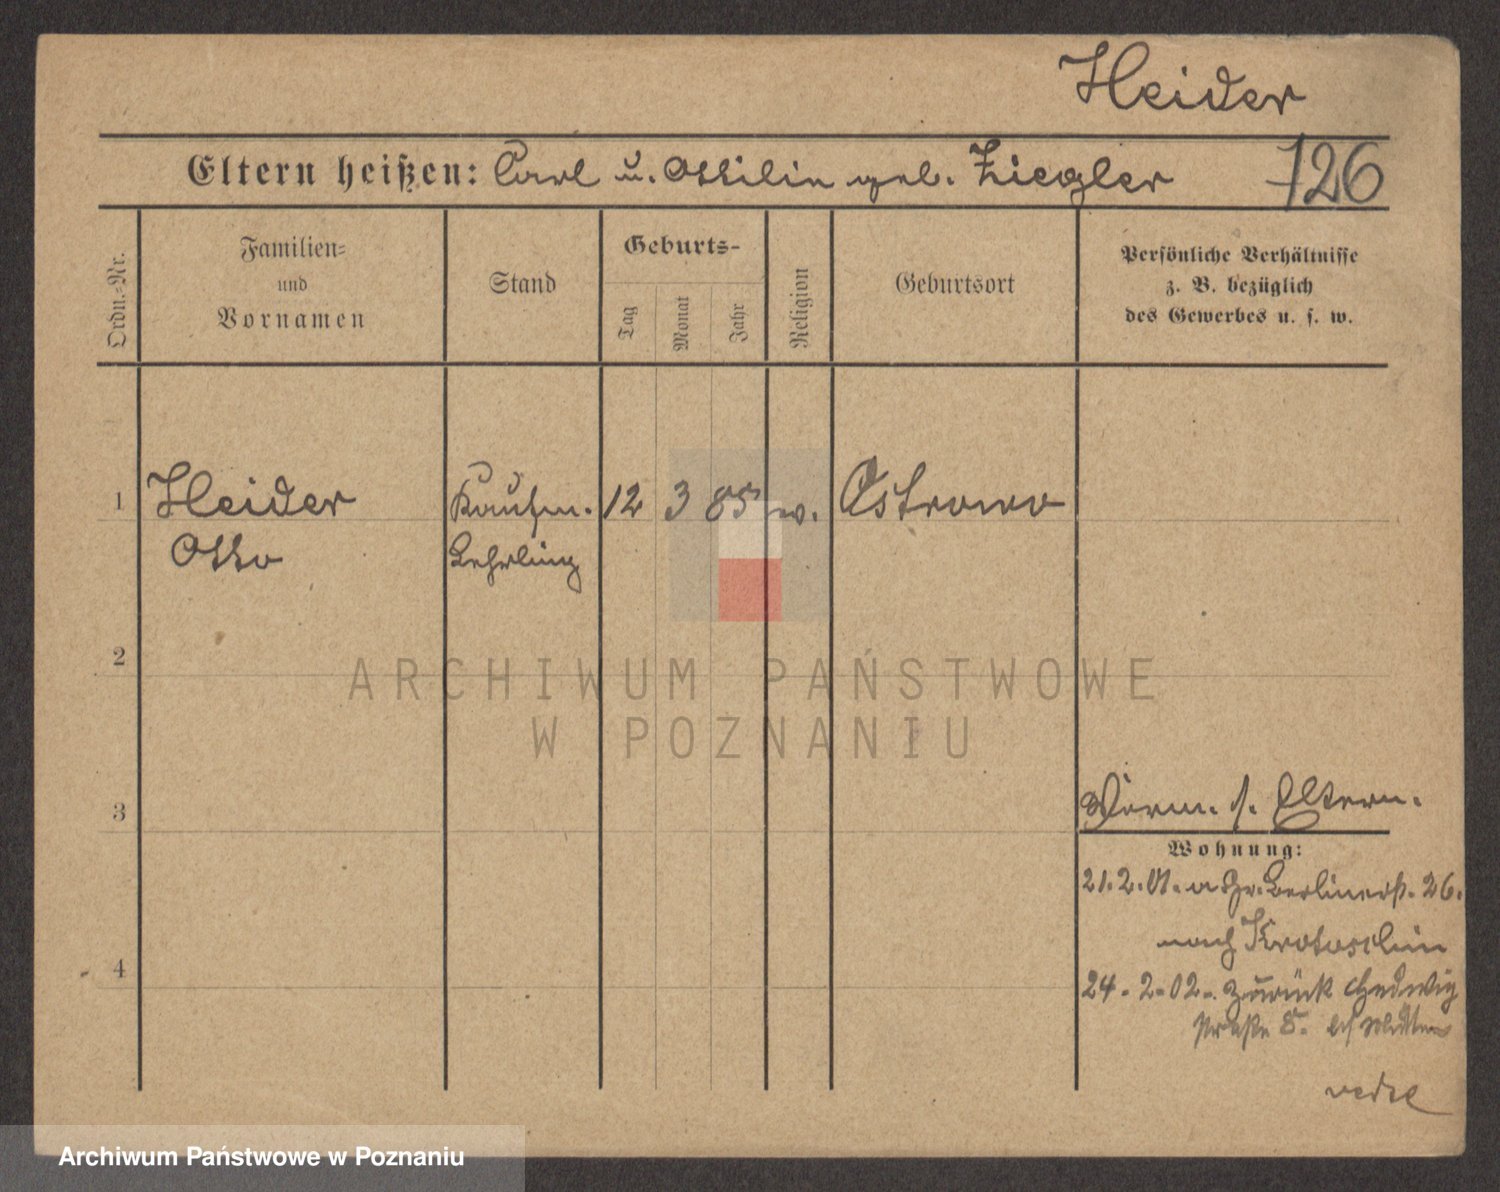 Heider
Eltern heißen: Carl u. Ottilie geb. Ziegler 126
Ordn.=Nr.
Familien=
und
Vornamen
Stand
Geburts-
Tag
Monat
Jahr
Religion
Geburtsort
Persönliche Verhältnisse
z. B. bezüglich
des Gewerbes u. s. w.
1 Heider Kaufm. 12 3 85 ev. Ostrowo
Otto Lehrling
2
3
Vorm. s. Eltern.
Wohnung:
21.2.01. Berlinerst. 26.
nach Krotoschin
4
24.2.02. zurück Hedwig
straße 8. bei Mutter
verte
ARCHIWUM PAŃSTWOWE
W POZNANIU
Archiwum Państwowe w Poznaniu